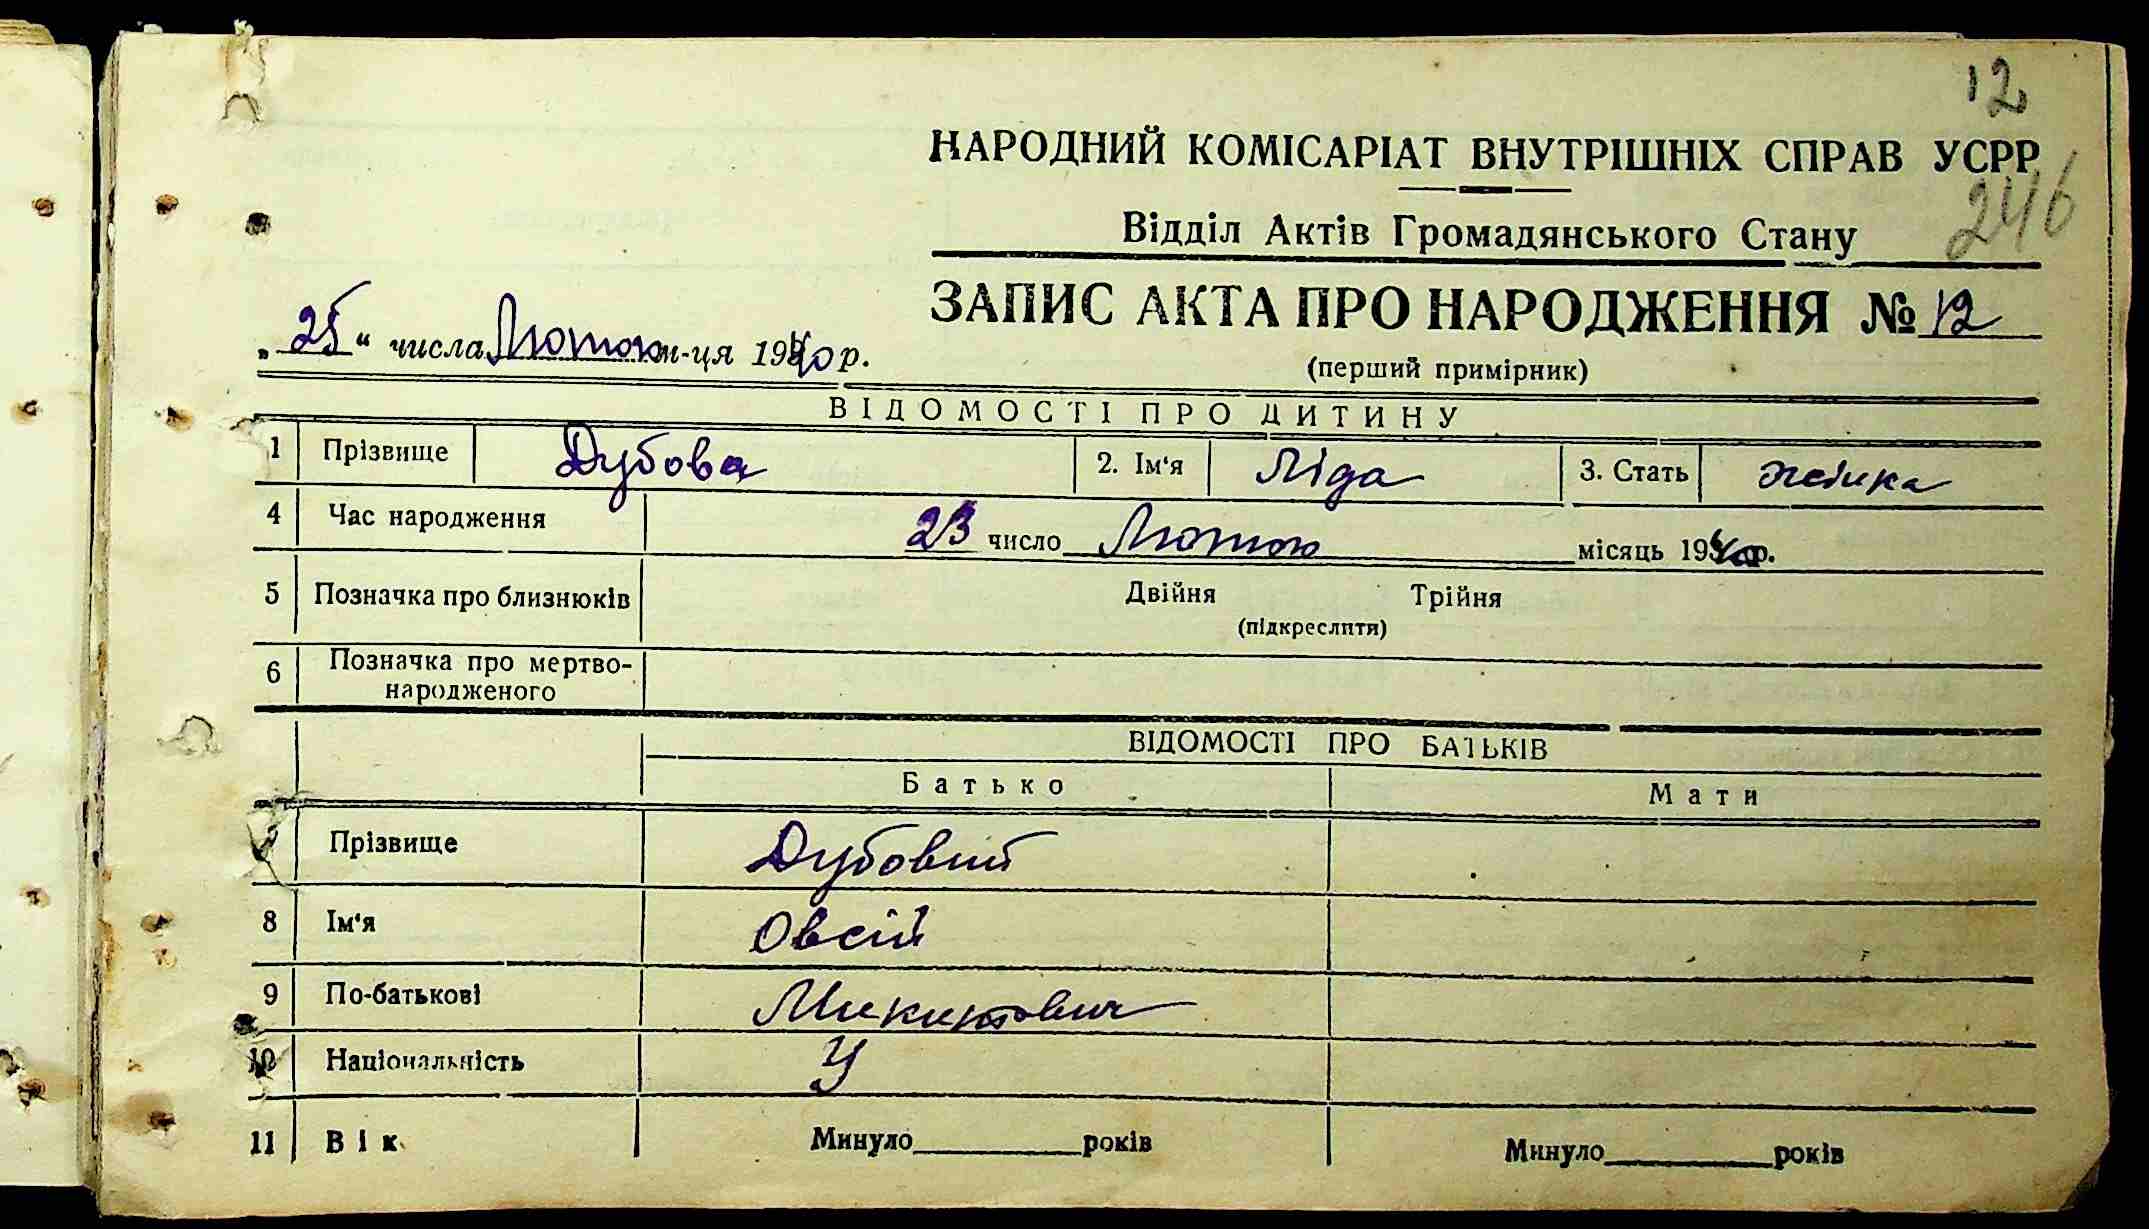 12
НАРОДНИЙ КОМІСАРІАТ ВНУТРІШНІХ СПРАВ УСРР
246
Відділ Актів Громадянського Стану
ЗАПИС АКТА ПРО НАРОДЖЕННЯ № 12
„25“ числа Лютого м-ця 1940 р.
(перший примірник)
ВІДОМОСТІ ПРО ДИТИНУ
1 Прізвище Дубова 2. Ім‘я Ліда 3. Стать жінка
4 Час народження 23 число Лютого місяць 1940 р.
5 Позначка про близнюків Двійня Трійня
(підкреслити)
6 Позначка про мертво-
народженого
ВІДОМОСТІ ПРО БАТЬКІВ
Батько Мати
7 Прізвище Дубовий
8 Ім‘я Овсій
9 По-батькові Микитович
10 Національність У
11 Вік Минуло років Минуло років